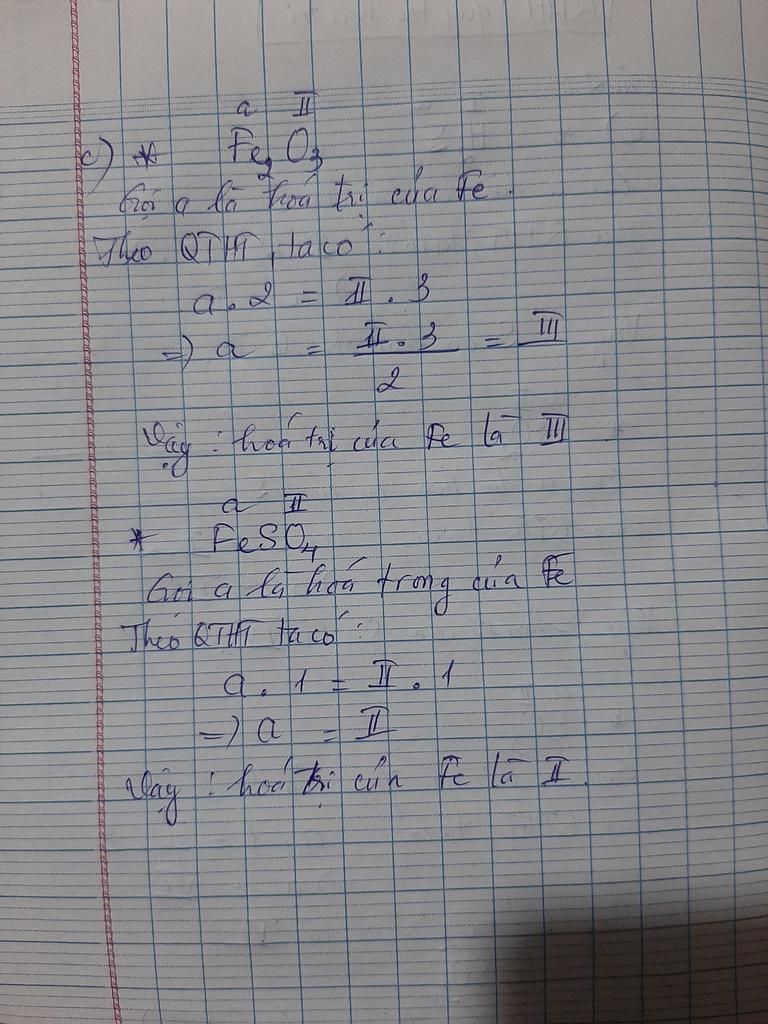 a II
c) * Fe2O3
Gọi a là hoá trị của Fe.
Theo QTHT, ta có:
a . 2 = II . 3
=> a = II . 3 / 2 = III
Vậy : hoá trị của Fe là III
a II
* FeSO4
Gọi a là hoá trong của Fe
Theo QTHT ta có:
a . 1 = II . 1
=> a = II
Vậy : hoá trị của Fe là II.